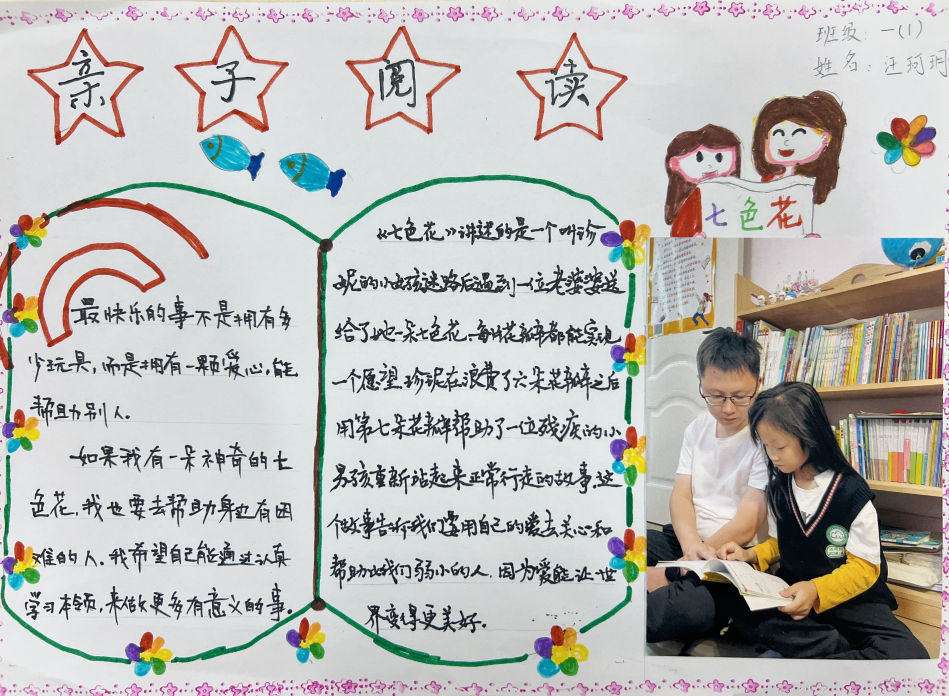 亲子阅读
班级：一(1)
姓名：汪珂玥
七色花
最快乐的事不是拥有多
少玩具，而是拥有一颗爱心，能
帮助别人。
如果我有一朵神奇的七
色花，我也要去帮助身边有困
难的人。我希望自己能通过认真
学习本领，来做更多有意义的事。
《七色花》讲述的是一个叫珍
妮的小女孩迷路后遇到一位老婆婆送
给了她一朵七色花，每片花瓣都能实现
一个愿望。珍妮在浪费了六朵花瓣之后
用第七朵花瓣帮助了一位残疾的小
男孩重新站起来正常行走的故事。这
个故事告诉我们要用自己的爱去关心和
帮助比我们弱小的人，因为爱能让世
界变得更美好。